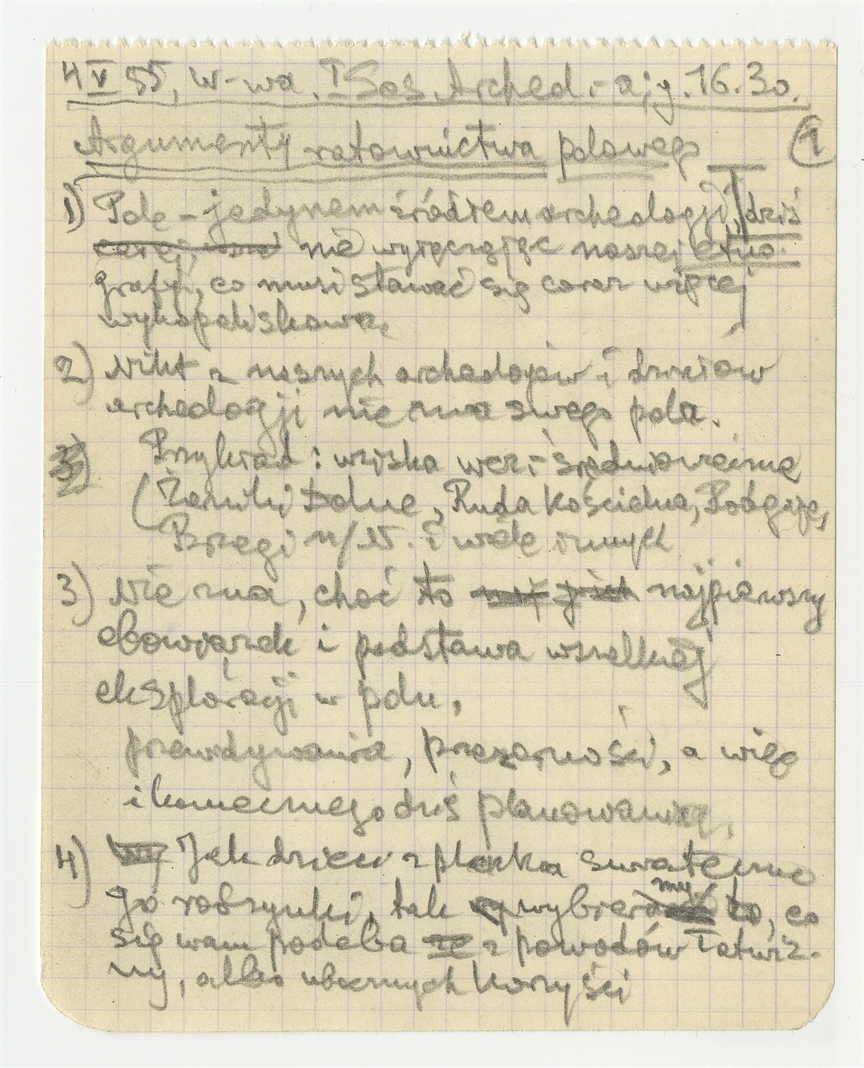 4 V 55, W-wa. I Ses. Archeol.-a; g. 16.30.
Argumenty ratownictwa polowego ①
1) Pole – jedynem źródłem archeologji, dziś
nie wyręczając naszej etno-
grafji, co musi stawać się coraz więcej
wykopaliskową,
2) Nikt z naszych archeologów i dziejów
archeologji nie zna swego pola.
Przykład: wczi-średniowieczne
(Żerniki Dolne, Ruda Kościelna, Podgaje,
Brzegi n/N. i wiele innych
3) Nie zna, choć to najpierwszy
obowiązek i podstawa wszelkiej
eksploracji w polu,
przewidywania, prezorności, a więc
i koniecznego dziś planowania,
4) Jak dzieci z placka świątecznego
rodzynki, tak wybieramy to, co
się wam podoba z powodów łatwiz-
ny, albo ubocznych korzyści